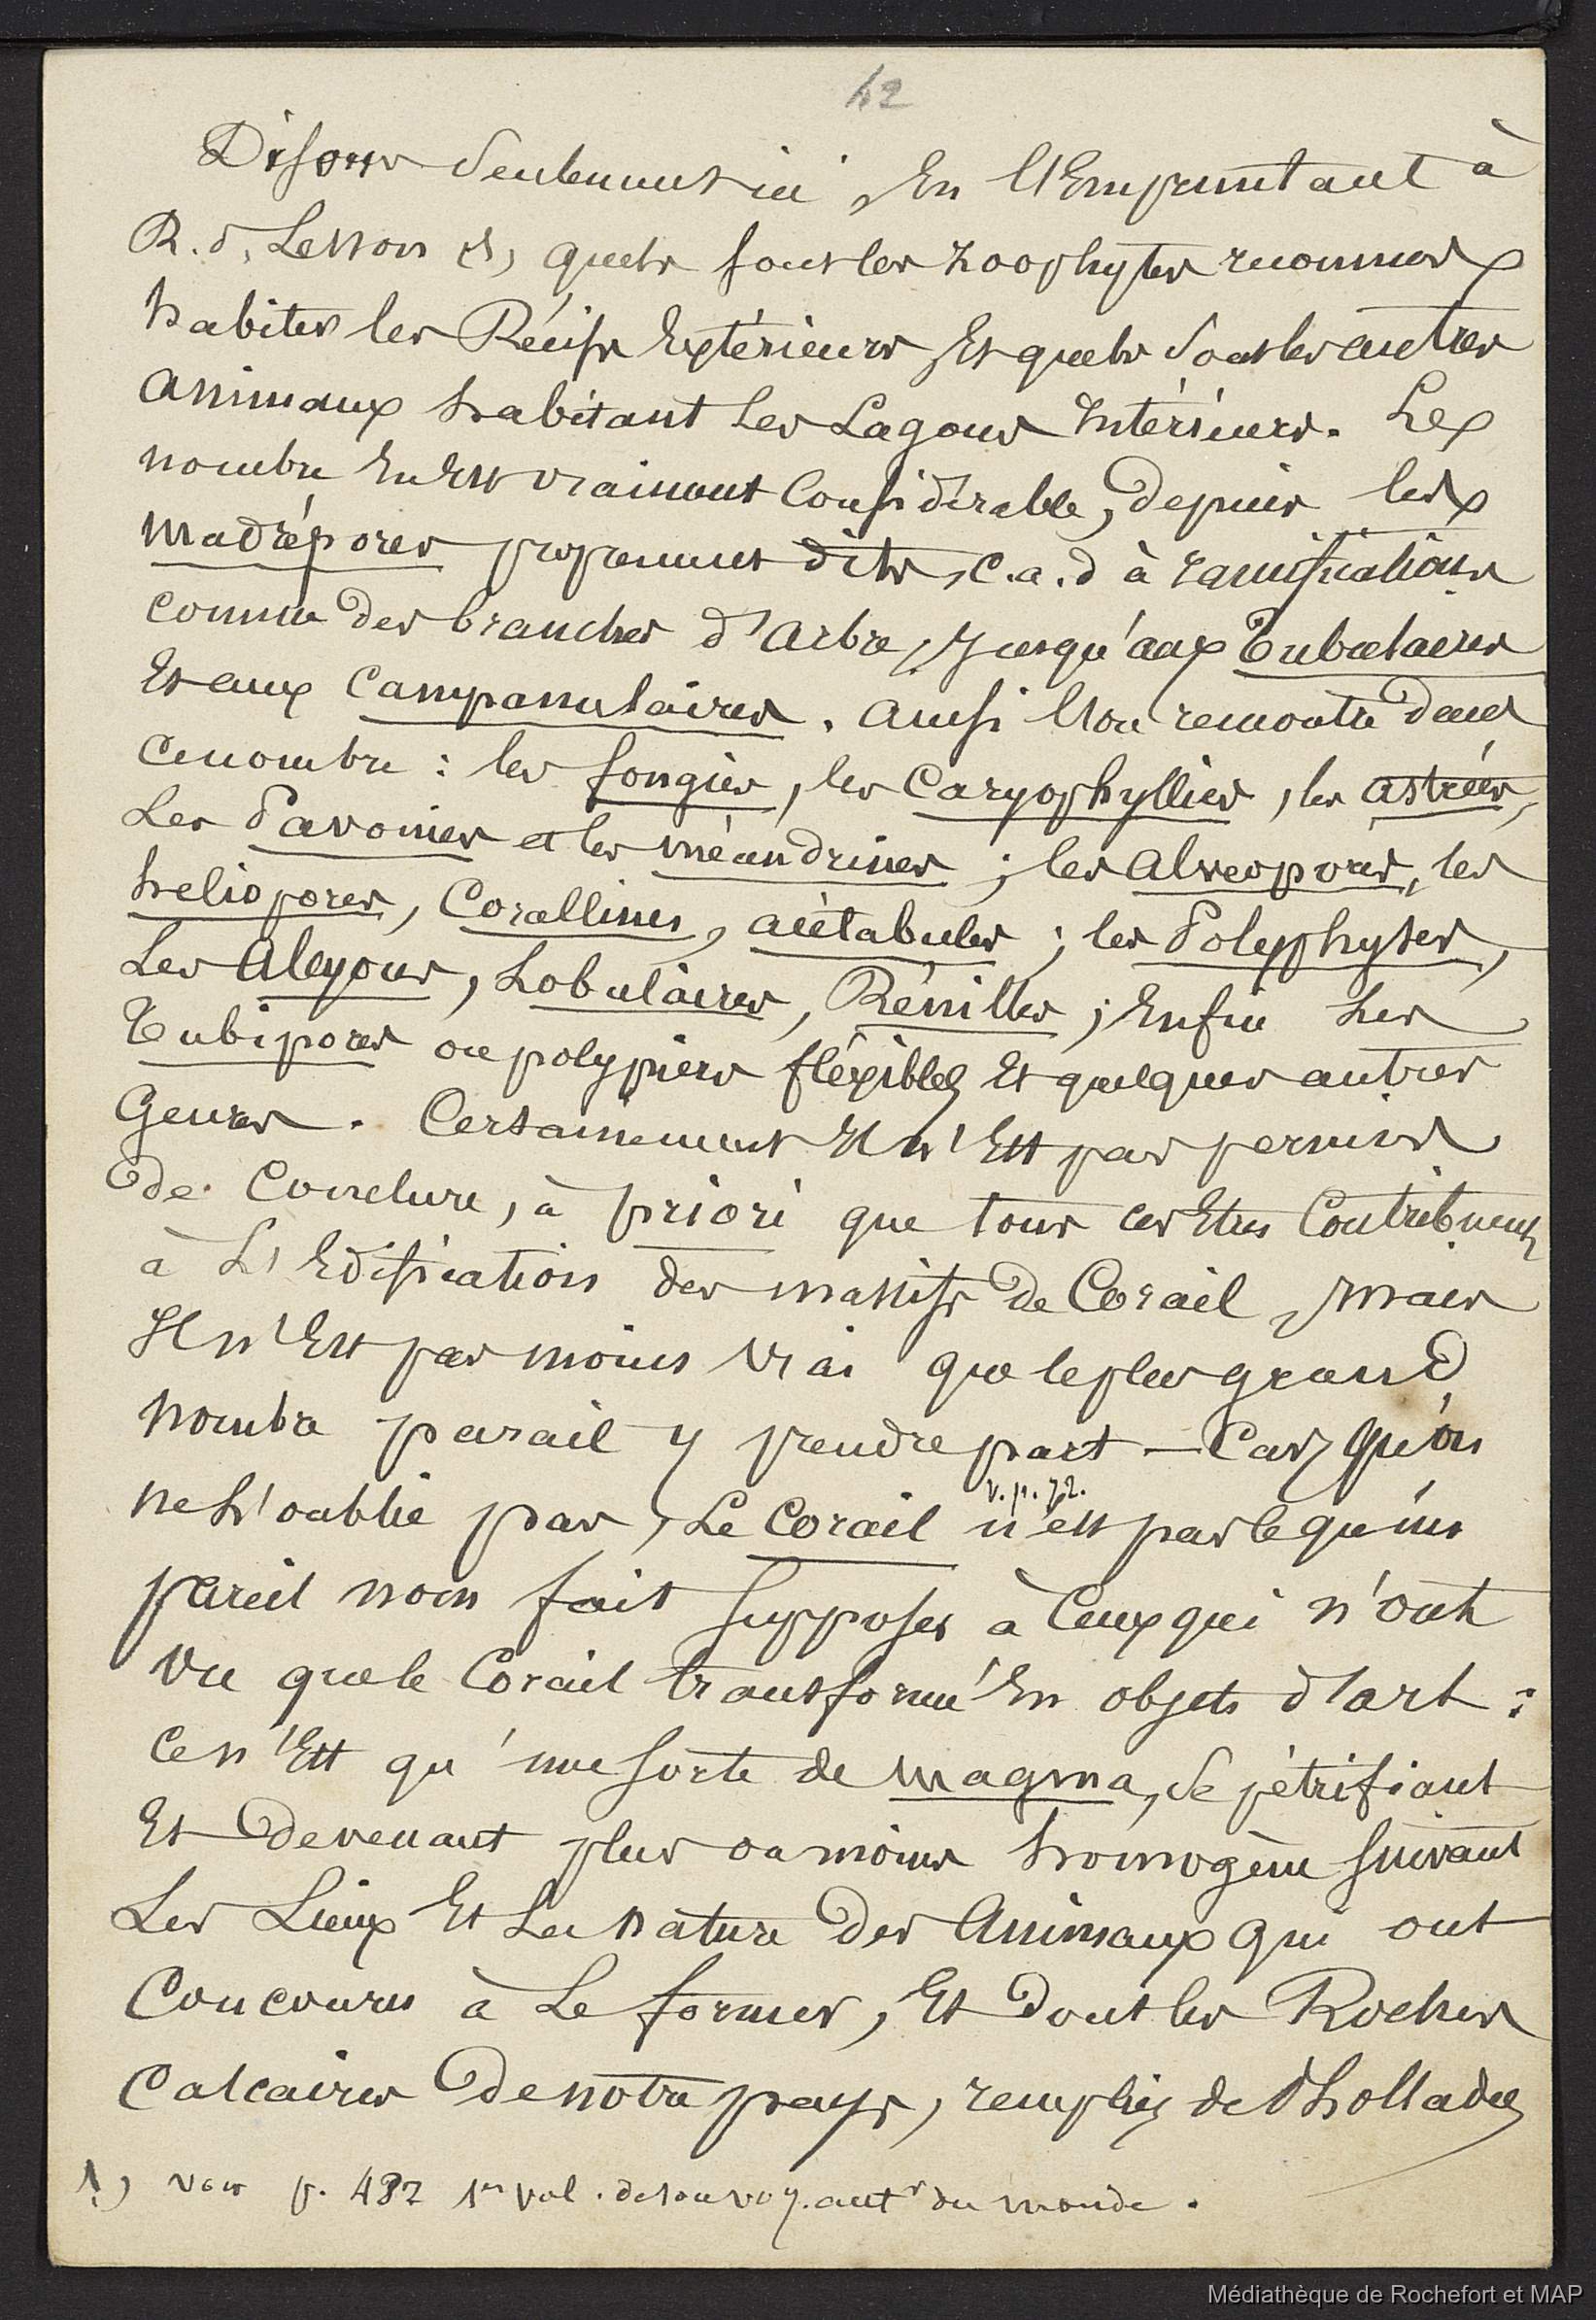 42
Disons seulement ici, En l'Empruntant à
R. P. Lesson (1), quels sont les zoophytes reconnus
habiter les Récifs Extérieurs Et quels sont les autres
animaux habitant les Lagons Intérieurs. Le
nombre En Est vraiment Considérable, depuis les
madrépores proprement dits, c.a.d à ramifications
comme des branches d'arbre, Jusqu'aux Tubulaires
Et aux Campanulaires. Ainsi l'on rencontre dans
ce nombre : les fongies, les Caryophyllies, les astrées,
Les Pavonies et les méandrines ; les alvéopores, les
héliopores, Corallines, acétabules ; les Polyphyses,
Les Alcyons, Lobulaires, Rénilles ; Enfin Les
Tubipores ou polypiers fléxibles Et quelques autres
Genres. Certainement Il n'Est pas permis
de Conclure, à priori que tous ces Etres Contribuent
à L'Edification des massifs de Corail, mais
Il n'Est pas moins vrai que le plus grand
nombre parait y prendre part — Car, qu'on
ne L'oublie pas, Le Corail n'est pas ce qu'un
v. p. 72.
pareil nom fait supposer à Ceux qui n'ont
vu que le Corail transformé En objets d'art :
Ce n'Est qu'une sorte de magma, se pétrifiant
Et devenant plus ou moins homogène suivant
Les Lieux Et La nature des Animaux qui ont
Concouru à Le former, Et dont les Rochers
Calcaires de notre pays, remplis de Pholades
1) voir p. 487 1er vol. de son voy. autr du monde.
Médiathèque de Rochefort et MAP